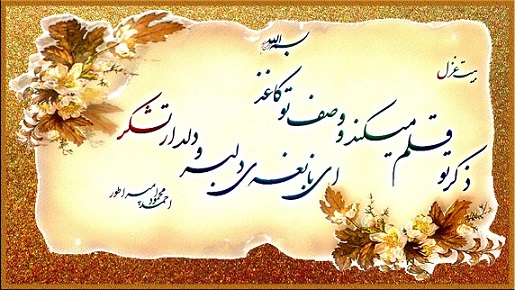 بسم الله
بیت غزل
ذکر تو قلم میکند و وصف تو کاغذ
ای نابغه ی دلبر و دلدار تشکر
احمد محمود امپراطور